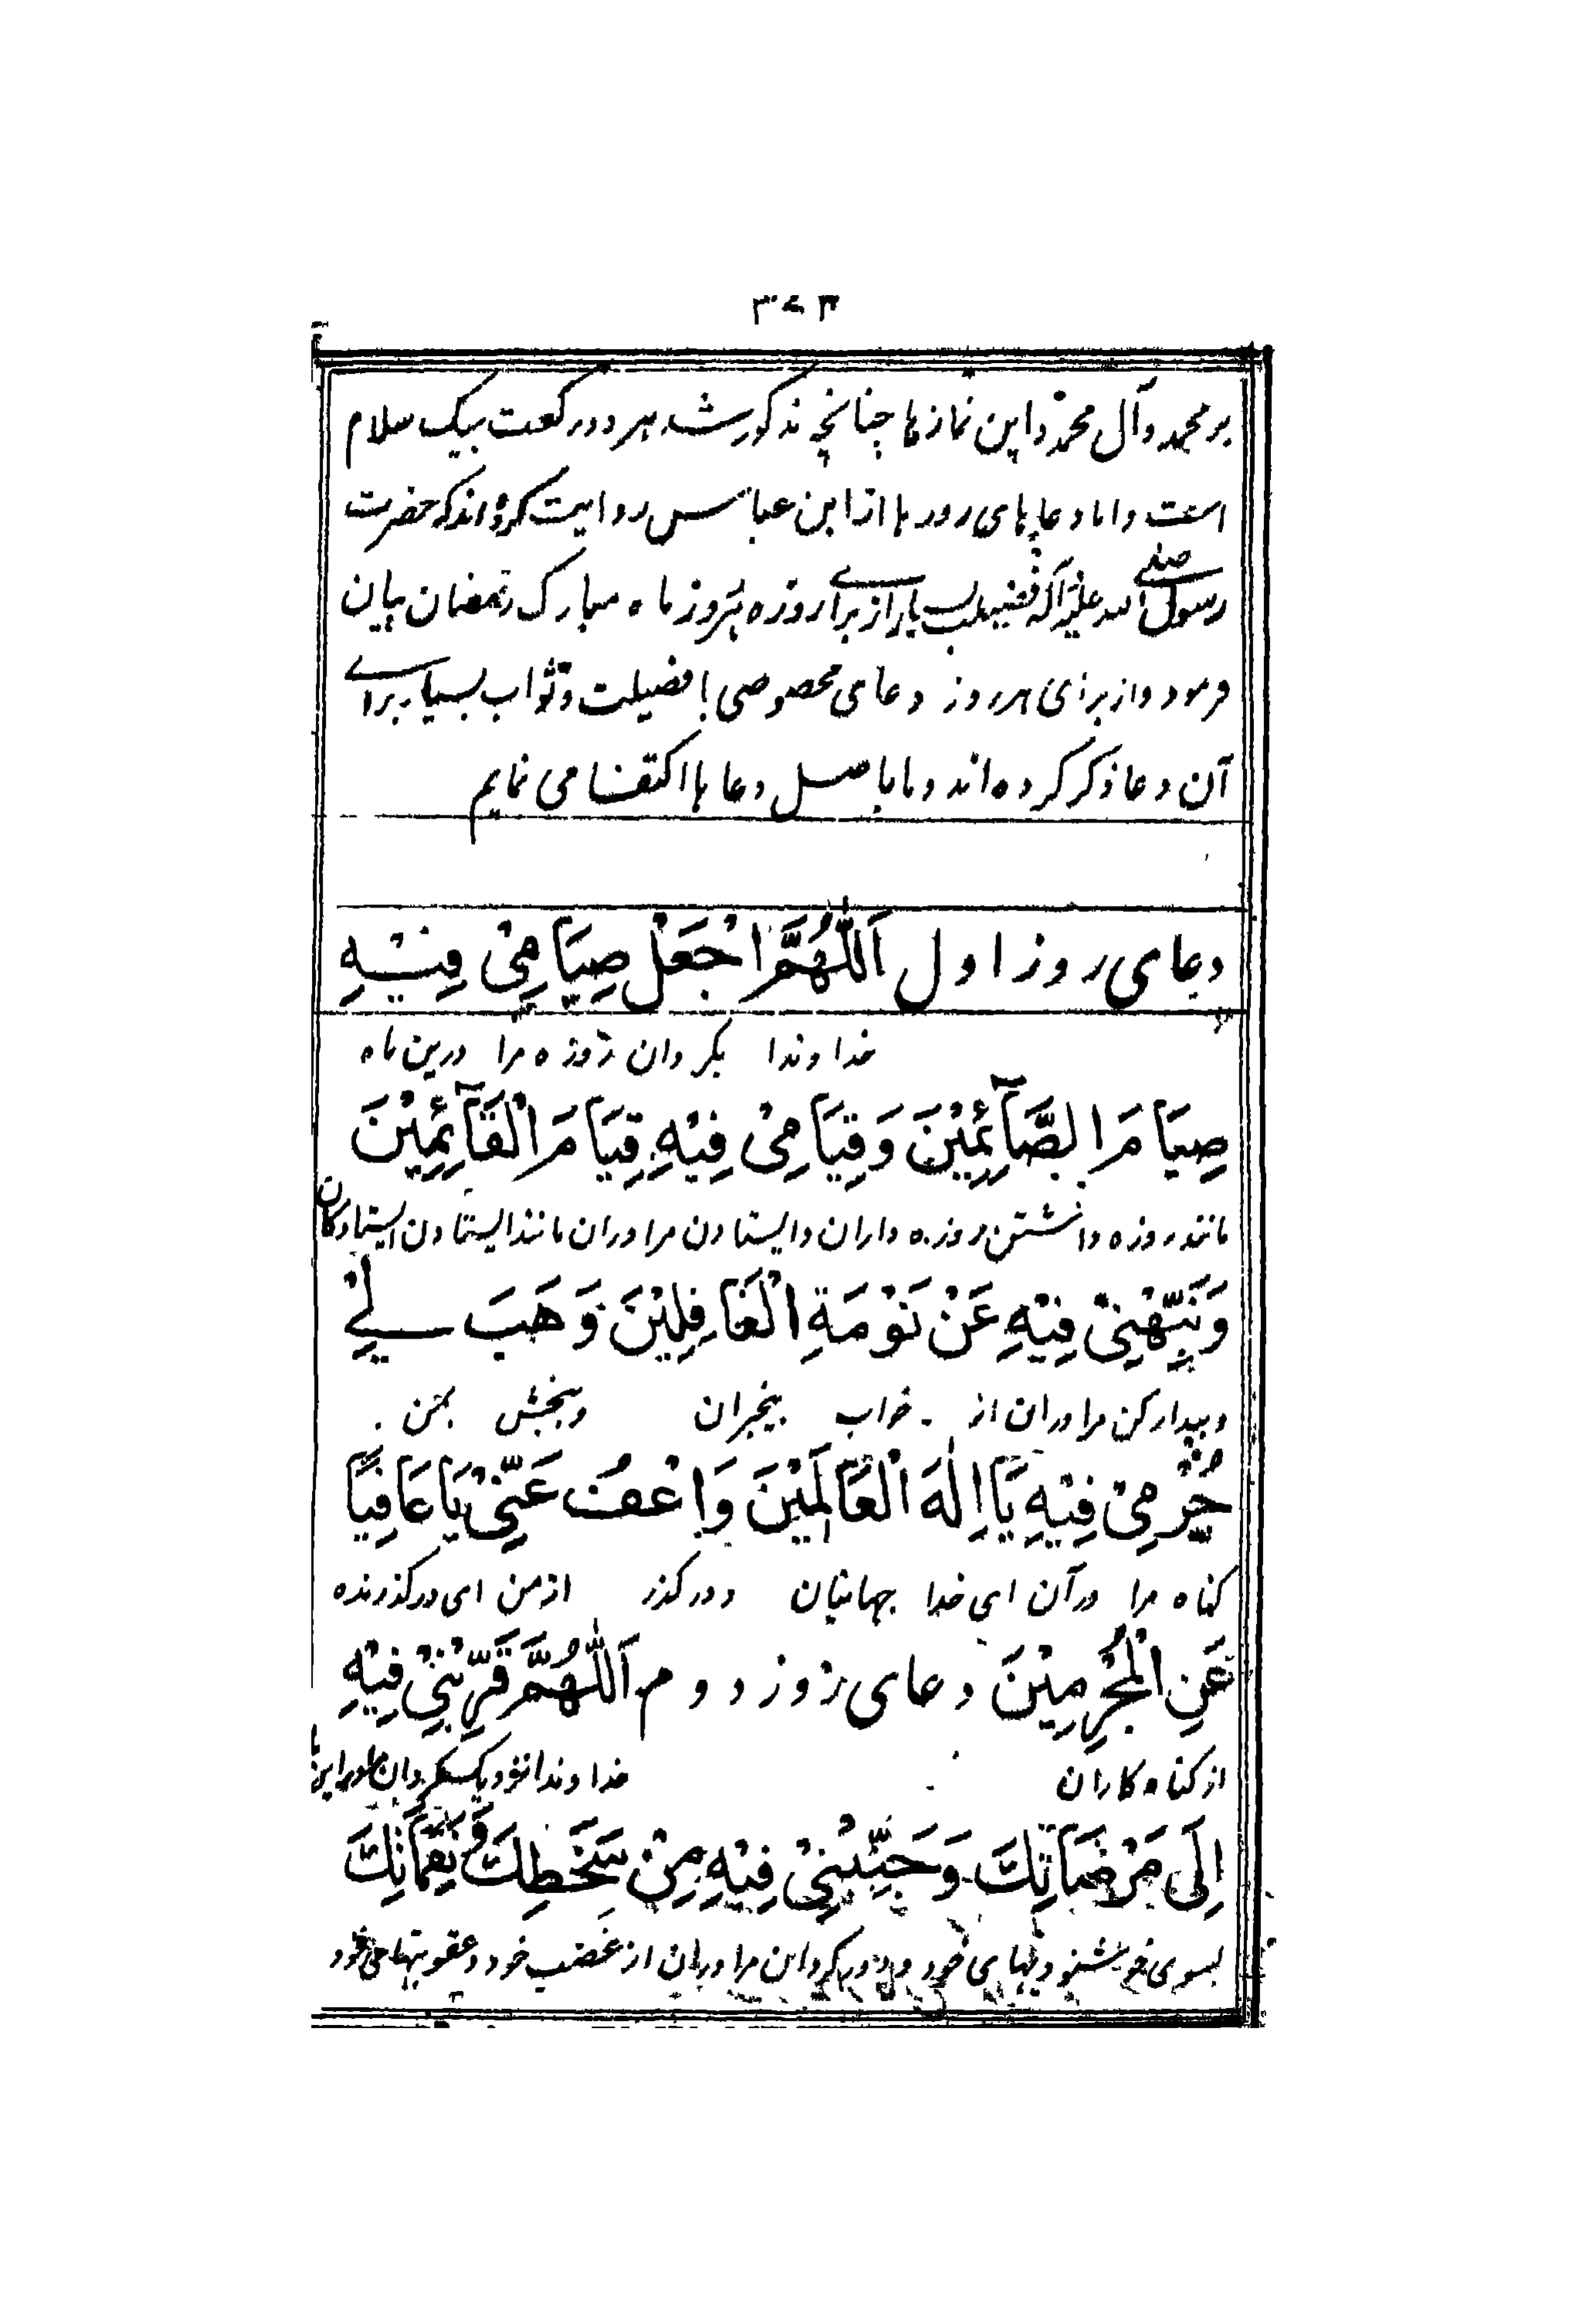 ۳۷۳
بر محمد و آل محمد و این نمازها چنانچه مذکور شد هر دو رکعت بیک سلام
است و اما دعاهای روزها از ابن عباس روایت کرده‌اند که حضرت
رسول صلی الله علیه و آله فضیلت بسیار از برای روزه هر روز ماه مبارک رمضان بیان
فرمود و از برای هر روز دعای مخصوصی با فضیلت و ثواب بسیار برای
آن دعا ذکر کرده‌اند و ما باصل دعاها اکتفا می نمایم
دعای روز اول اَللّٰهُمَّ اجْعَلْ صِیَامِیْ فِیْهِ
خداوندا بگردان روزه مرا درین ماه
صِیَامَ الصَّآئِمِیْنَ وَ قِیَامِیْ فِیْهِ قِیَامَ الْقَآئِمِیْنَ
مانند روزه داشتن روزه داران و ایستادن مرا در آن مانند ایستادن ایستادگان
وَ نَبِّهْنِیْ فِیْهِ عَنْ نَوْمَةِ الْغَافِلِیْنَ وَ هَبَ لِیْ
و بیدار کن مرا در ان از خواب بیخبران و ببخش بمن
جُرْمِیْ فِیْهِ یَا اِلٰهَ الْعَالَمِیْنَ وَ اعْفُ عَنِّیْ یَا عَافِیًا
گناه مرا در آن ای خدا جهانیان و در گذر از من ای درگذرنده
عَنِ الْمُجْرِمِیْنَ دعای روز دوم اَللّٰهُمَّ قَرِّبْنِیْ فِیْهِ
از گناه کاران خداوندا نزدیک بگردان مرا در این
اِلَی مَرْضَاتِكَ وَ جَنِّبْنِیْ فِیْهِ مِنْ سَخَطِكَ وَ نَقِمَاتِكَ
بسوی خوشنودیهای خود و دور گردان مرا در ان از غضب خود و عقوبتهای خود